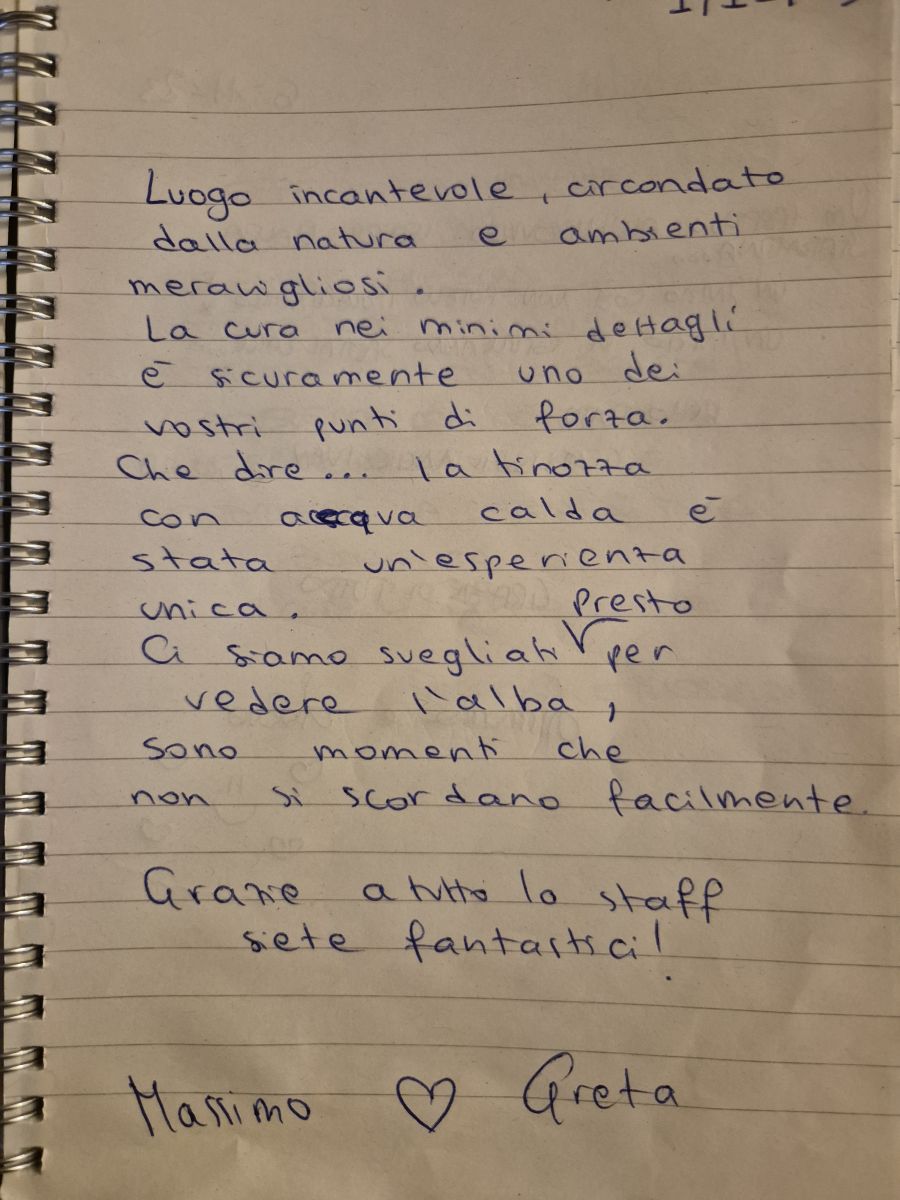 Luogo incantevole, circondato
dalla natura e ambienti
meravigliosi.
La cura nei minimi dettagli
è sicuramente uno dei
vostri punti di forza.
Che dire... la tinozza
con acqua calda è
stata un'esperienza
unica.
Ci siamo svegliati presto per
vedere l'alba,
sono momenti che
non si scordano facilmente.
Grazie a tutto lo staff
siete fantastici!
Massimo ♡ Greta